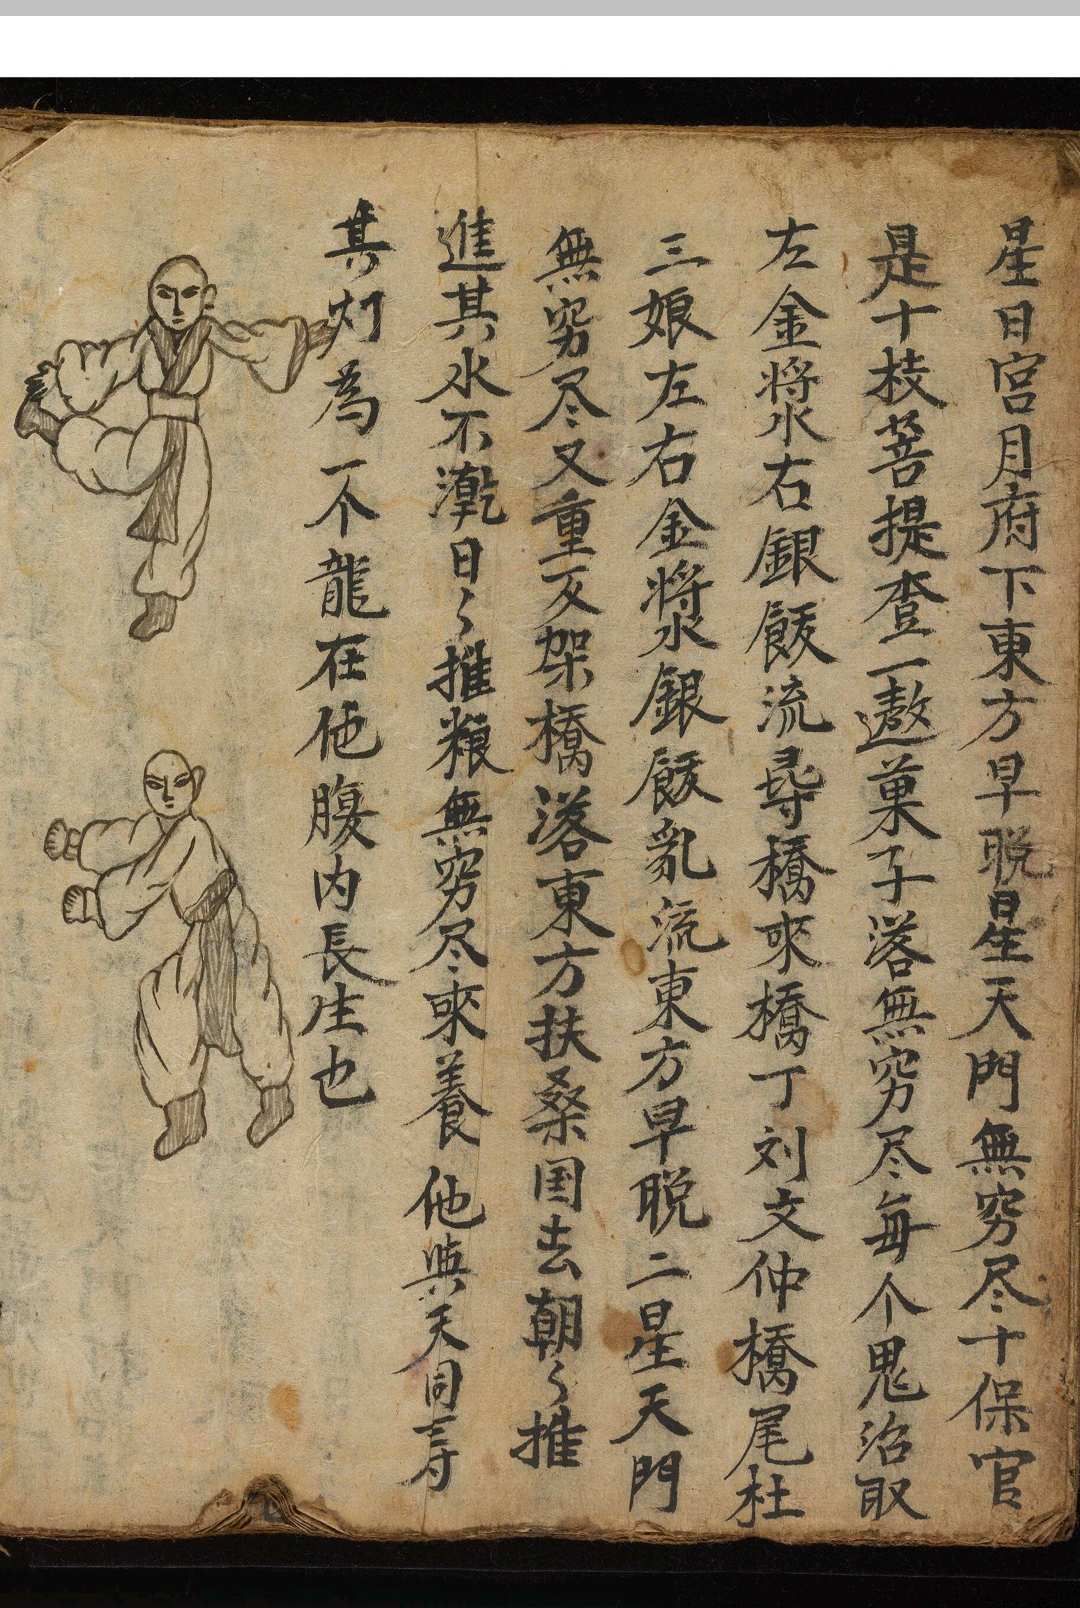 星日宮月府下東方早晩星天門無窮尽十保官
是十枝菩提查一遨菓子落無窮尽毎个鬼治取
左金漿水右銀飯流尋橋來橋丁刘文仲橋尾杜
三娘左右金漿水銀飯乱流東方早晩二星天門
無窮尽又重又架橋落東方扶桑国去朝〻推
進其水不漧日〻推粮無窮尽來養他與天同寿
其灯為一不龍在他腹内長生也